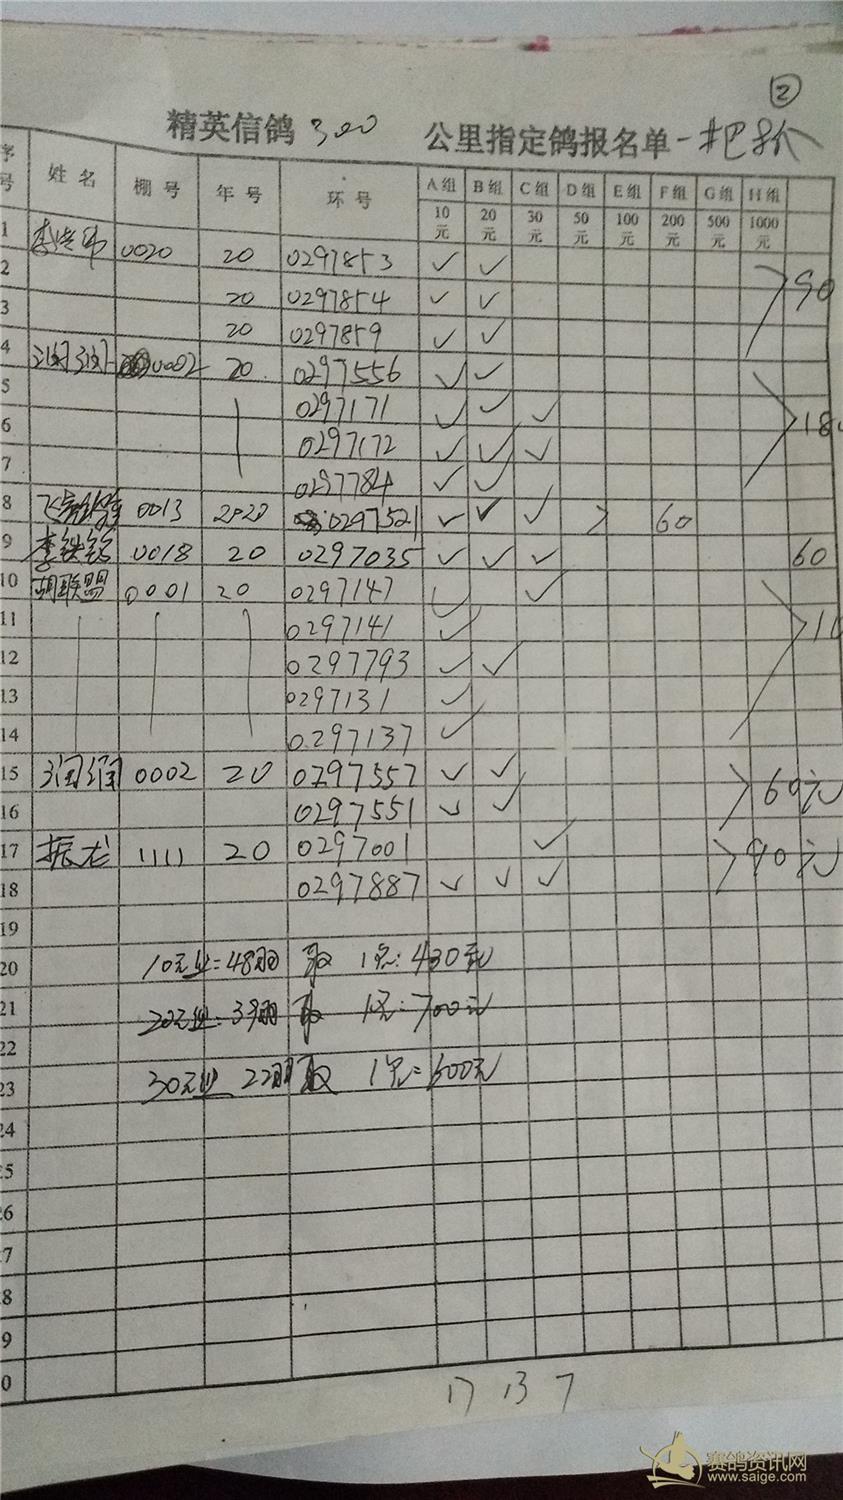 ②
精英信鸽 300 公里指定鸽报名单
序号 姓名 棚号 年号 环号 A组 B组 C组 D组 E组 F组 G组 H组
10元 20元 30元 50元 100元 200元 500元 1000元
1 0020 20 0297853 ✓ ✓
2 20 0297854 ✓ ✓ 90
3 20 0297859 ✓ ✓
4 0002 20 0297556 ✓ ✓
5 0297171 ✓ ✓ ✓
6 0297172 ✓ ✓ ✓ 18
7 0297784 ✓ ✓
8 0013 2020 0297521 ✓ ✓ ✓ 60
9 李铁 0018 20 0297035 ✓ ✓ ✓ 60
10 胡联盟 0001 20 0297147 ✓ ✓
11 0297141 ✓ 11
12 0297793 ✓ ✓
13 0297131 ✓
14 0297137 ✓
15 0002 20 0297557 ✓ ✓ 60元
16 0297551 ✓ ✓
17 振龙 1111 20 0297001 ✓ 90元
18 0297887 ✓ ✓ ✓
19
20 10元 48羽 取 1名: 430元
21 20元 39羽 取 1名: 700元
22
23 30元 22羽 取 1名: 600元
24
25
26
27
28
29
30
17 13 7
赛鸽资讯网
www.saige.com